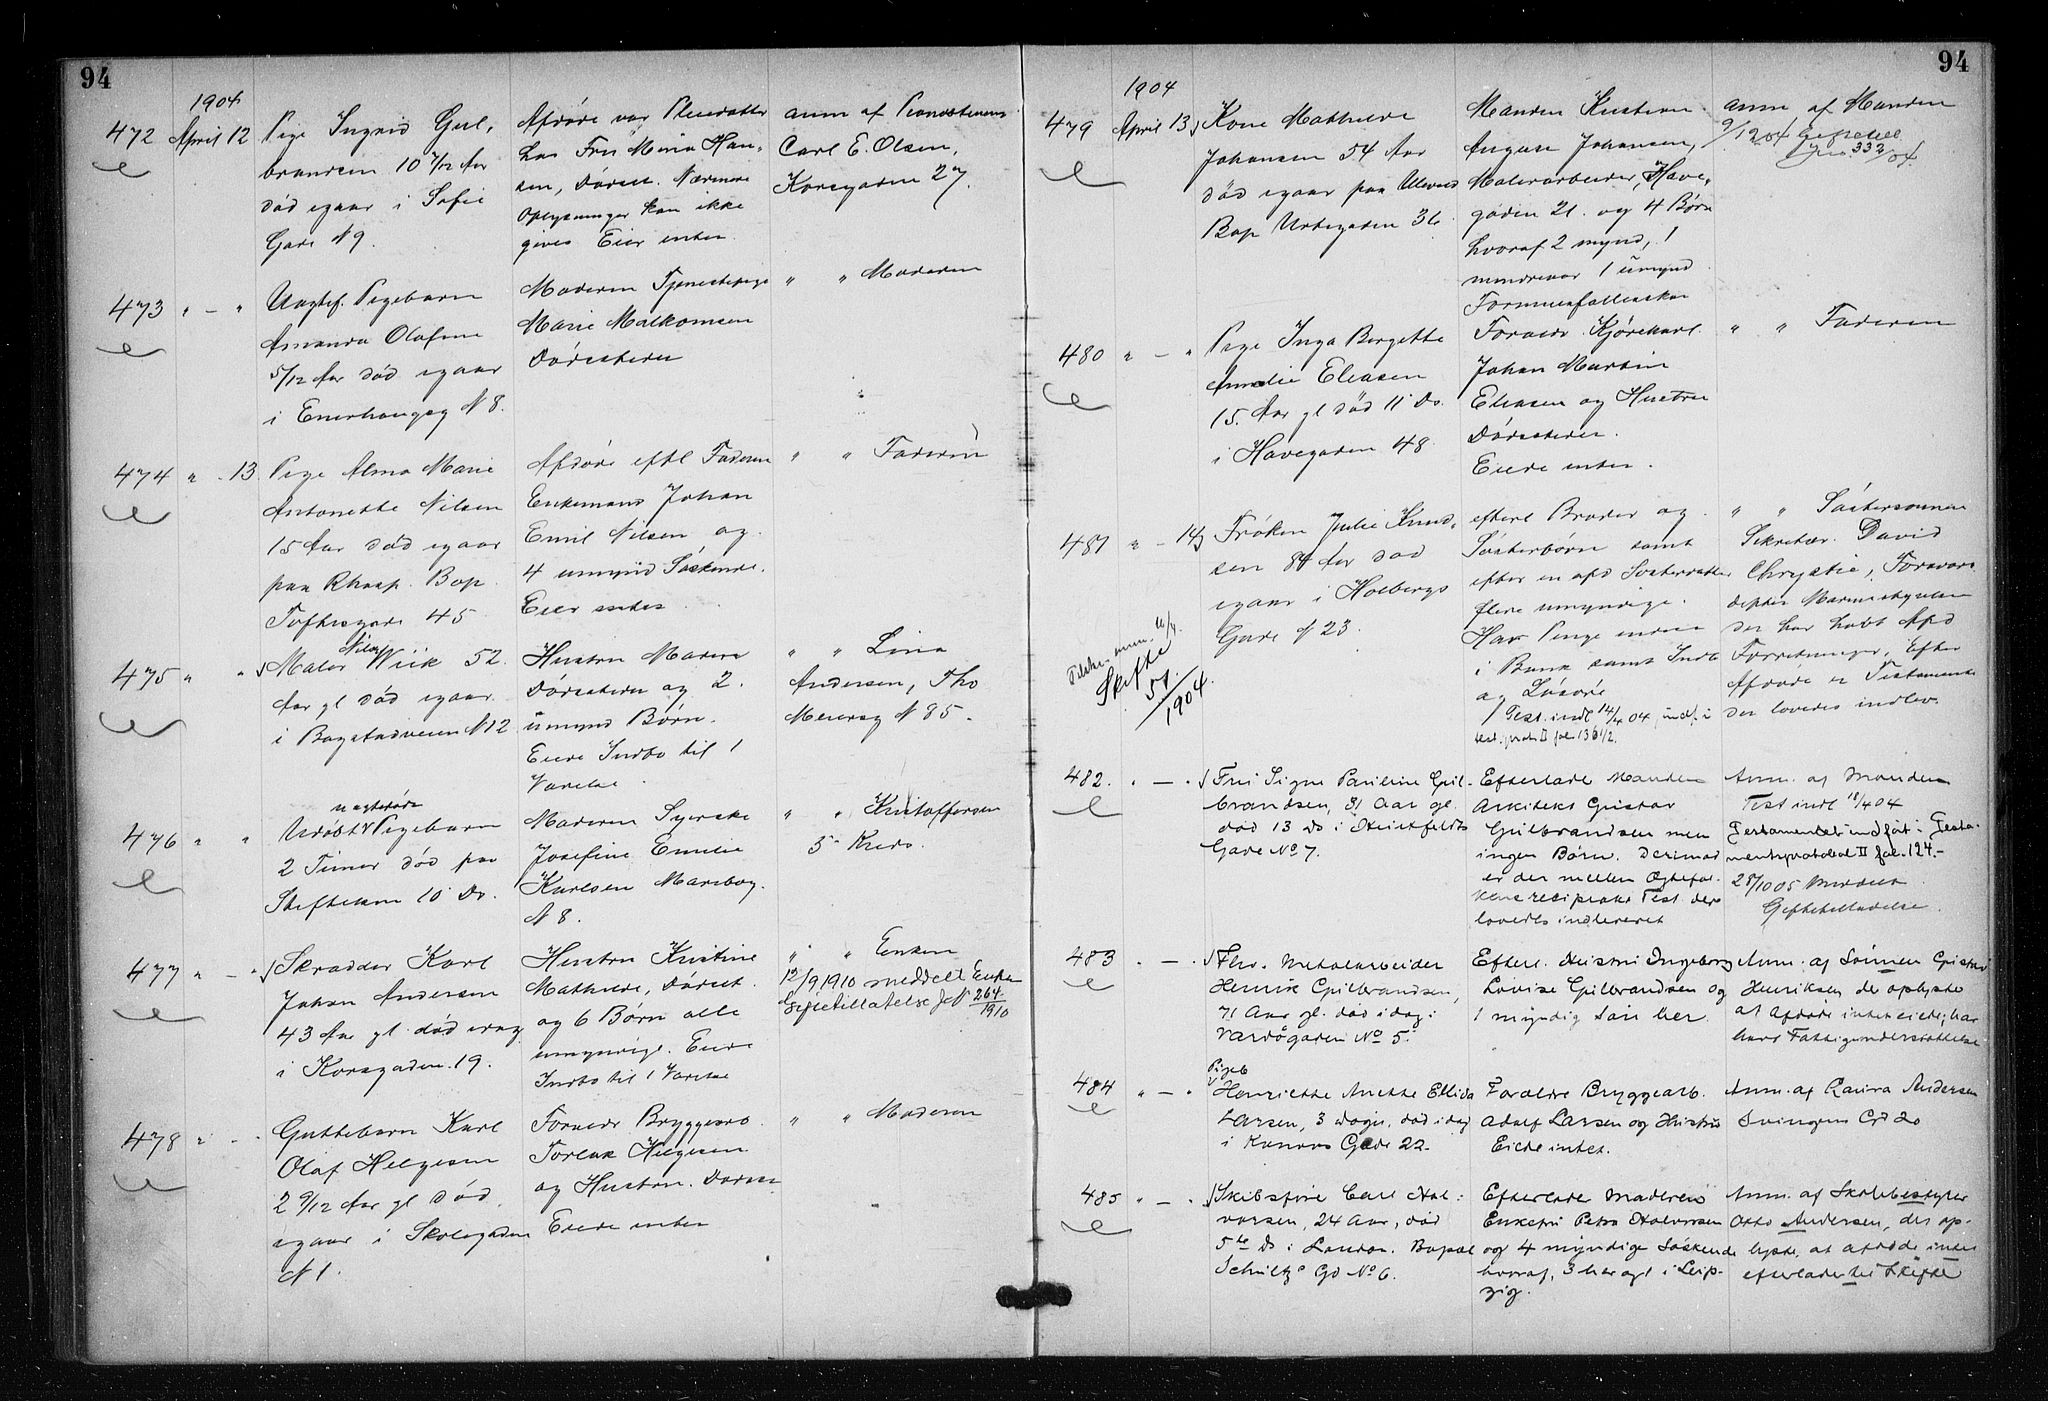 94
1904
472 April 12
Pige Ingrid Gul,
brandsen 10 7/12 Aar
død igaar i Sofie
Gade N 9.
Afdøde var Pleiedatter
hos Fru Minia Han,
sen, Dødsst. Nærmere
Oplysninger kan ikke
gives Eier intet.
anm af
Carl E. Olsen,
Korsgaden 27.
473 " - "
Uægtef. Pigebarn
Amanda Olafine
5/12 Aar død igaar
i Enerhaugsg N 8.
Moderen Tjenestepige
Marie Malkomsen
Dødsstedet
" " Moderen
474 " - 13.
Pige Alma Marie
Antonette Nilsen
15 Aar død igaar
paa Rhosp. Bop
Toftesgade 45
Afdøde eftl Faderen
Enkemand Johan
Emil Nilsen og
4 umynd Søskende.
Eier intet
" " Faderen
475 " "
Nils
Maler Wiik 52.
Aar gl død igaar
i Bogstadveien N 12
Hustru
Dødsstedet og 2.
umynd Børn.
Eiede Indbo til 1
Værelse
" " Lina
Andersen, Tho
Meiersg N 85.
476 " "
uægtefødt
Udøbt Pigebarn
2 Timer død paa
Stiftelsen 10 Ds.
Moderen Syerske
Josefine Emilie
Karlsen Maribog.
N 8.
" " Kristoffersen
5 Kreds.
477 " - "
Skrædder Karl
Johan Andersen
43 Aar gl død idag
i Korsgaden. 19.
Hustru Kristine
Mathilde, Dødsst.
og 6 Børn alle
umyndige. Eiede
Indbo til 1 Værelse
" " Enken
12/9 1910 meddelt Enken
Giftetilladelse J N 264/1910
478 " - "
Guttebarn Karl
Olaf Helgesen
2 9/12 Aar gl død
igaar i Skolegaden
N 1.
Foræld. Bryggesro
Torlak Helgesen
og Hustru. Dødsst
Eiede intet
" " Moderen
94
1904
479 April 13
Kone Mathilde
Johansen 54 Aar
død igaar paa Ullevaal
Bop Urtegaden 36
Manden Kristian
August Johansen,
Malerarbeider, Have,
gaden 21. og 4 Børn
hvoraf 2 mynd, 1
mindreaar 1 umynd
Formuesfællesskab
anm af Manden
9/12 04 Giftetill
Jno. 333/04.
480 " - "
Pige Inga Bergette
Amalie Eliasen
15. Aar gl død 11 Ds.
i Havegaden 48.
Forældr. Kjørekarl
Johan Martin
Eliasen og Hustru
Dødsstedet.
Eiede intet.
" " Faderen
481 " - 14
Frøken Julie Knud,
sen 84 Aar død
igaar i Holbergs
Gade N 23.
16/4.
Skifte
51/1904.
efterl Broder og
Søsterbørn samt
efter en afd Søsterdatter
flere umyndige.
Har Penge indsat
i Bank samt Indb
og Løsøre
Test. indl 14/4 04, indf. i
test. prot. II fol. 136 1/2.
" " Søstersønnen
Sekretær David
Chrystie, Forsvars
deptet
der har havt Afd
Forretninger. Efter
Afdøde er Testamente
der lovedes indlev.
482. " - "
Fru Signe Pauline Gul-
brandsen, 31 Aar gl.
død 13 Ds i Huitfeldts
Gade No 7.
Efterlade Manden
Arkitekt Gustav
Gulbrandsen men
ingen Børn. Derimod
er der mellem Ægtefol-
kene reciprokt Test. der
lovedes indleveret
Anm. af Manden
Test indl 18/4 04
Testamentet indført i Testa-
mentsprotokol II fol. 124.-
28/10 05 meddelt
Giftetilladelse.
483 " - "
Fhv. Metalarbeider
Henrik Gulbrandsen,
71 Aar gl. død idag i
Vardøgaden No 5.
Efterl. Hustru Ingeborg
Lovise Gulbrandsen og
1 myndig Søn her.
Anm. af Sønnen Gustav
Henriksen der oplyste
at Afdøde intet eiede, har
havt Fattigunderstøttelse
484 " - "
Pigeb
Henriette Anette Ellida
Larsen, 3 Dage, død idag
i Kanons Gade 22.
Forældre Bryggearb.
Adolf Larsen og Hustru
Eiede intet.
Anm. af Laura Andersen
Svingens Gd 20
485 " - "
Skibsfører Carl Hal-
vorsen, 24 Aar, død
5te Ds i London. Bopæl
Schultz's Gd No 6.
Efterlade Moderen
Enkefru Petra Halvorsen
og 4 myndige Søskende
hvoraf, 3 her og 1 i Leip-
zig.
Anm. af Skolebestyrer
Otto Andersen, der op-
lyste, at afdøde intet
efterlader til Skifte